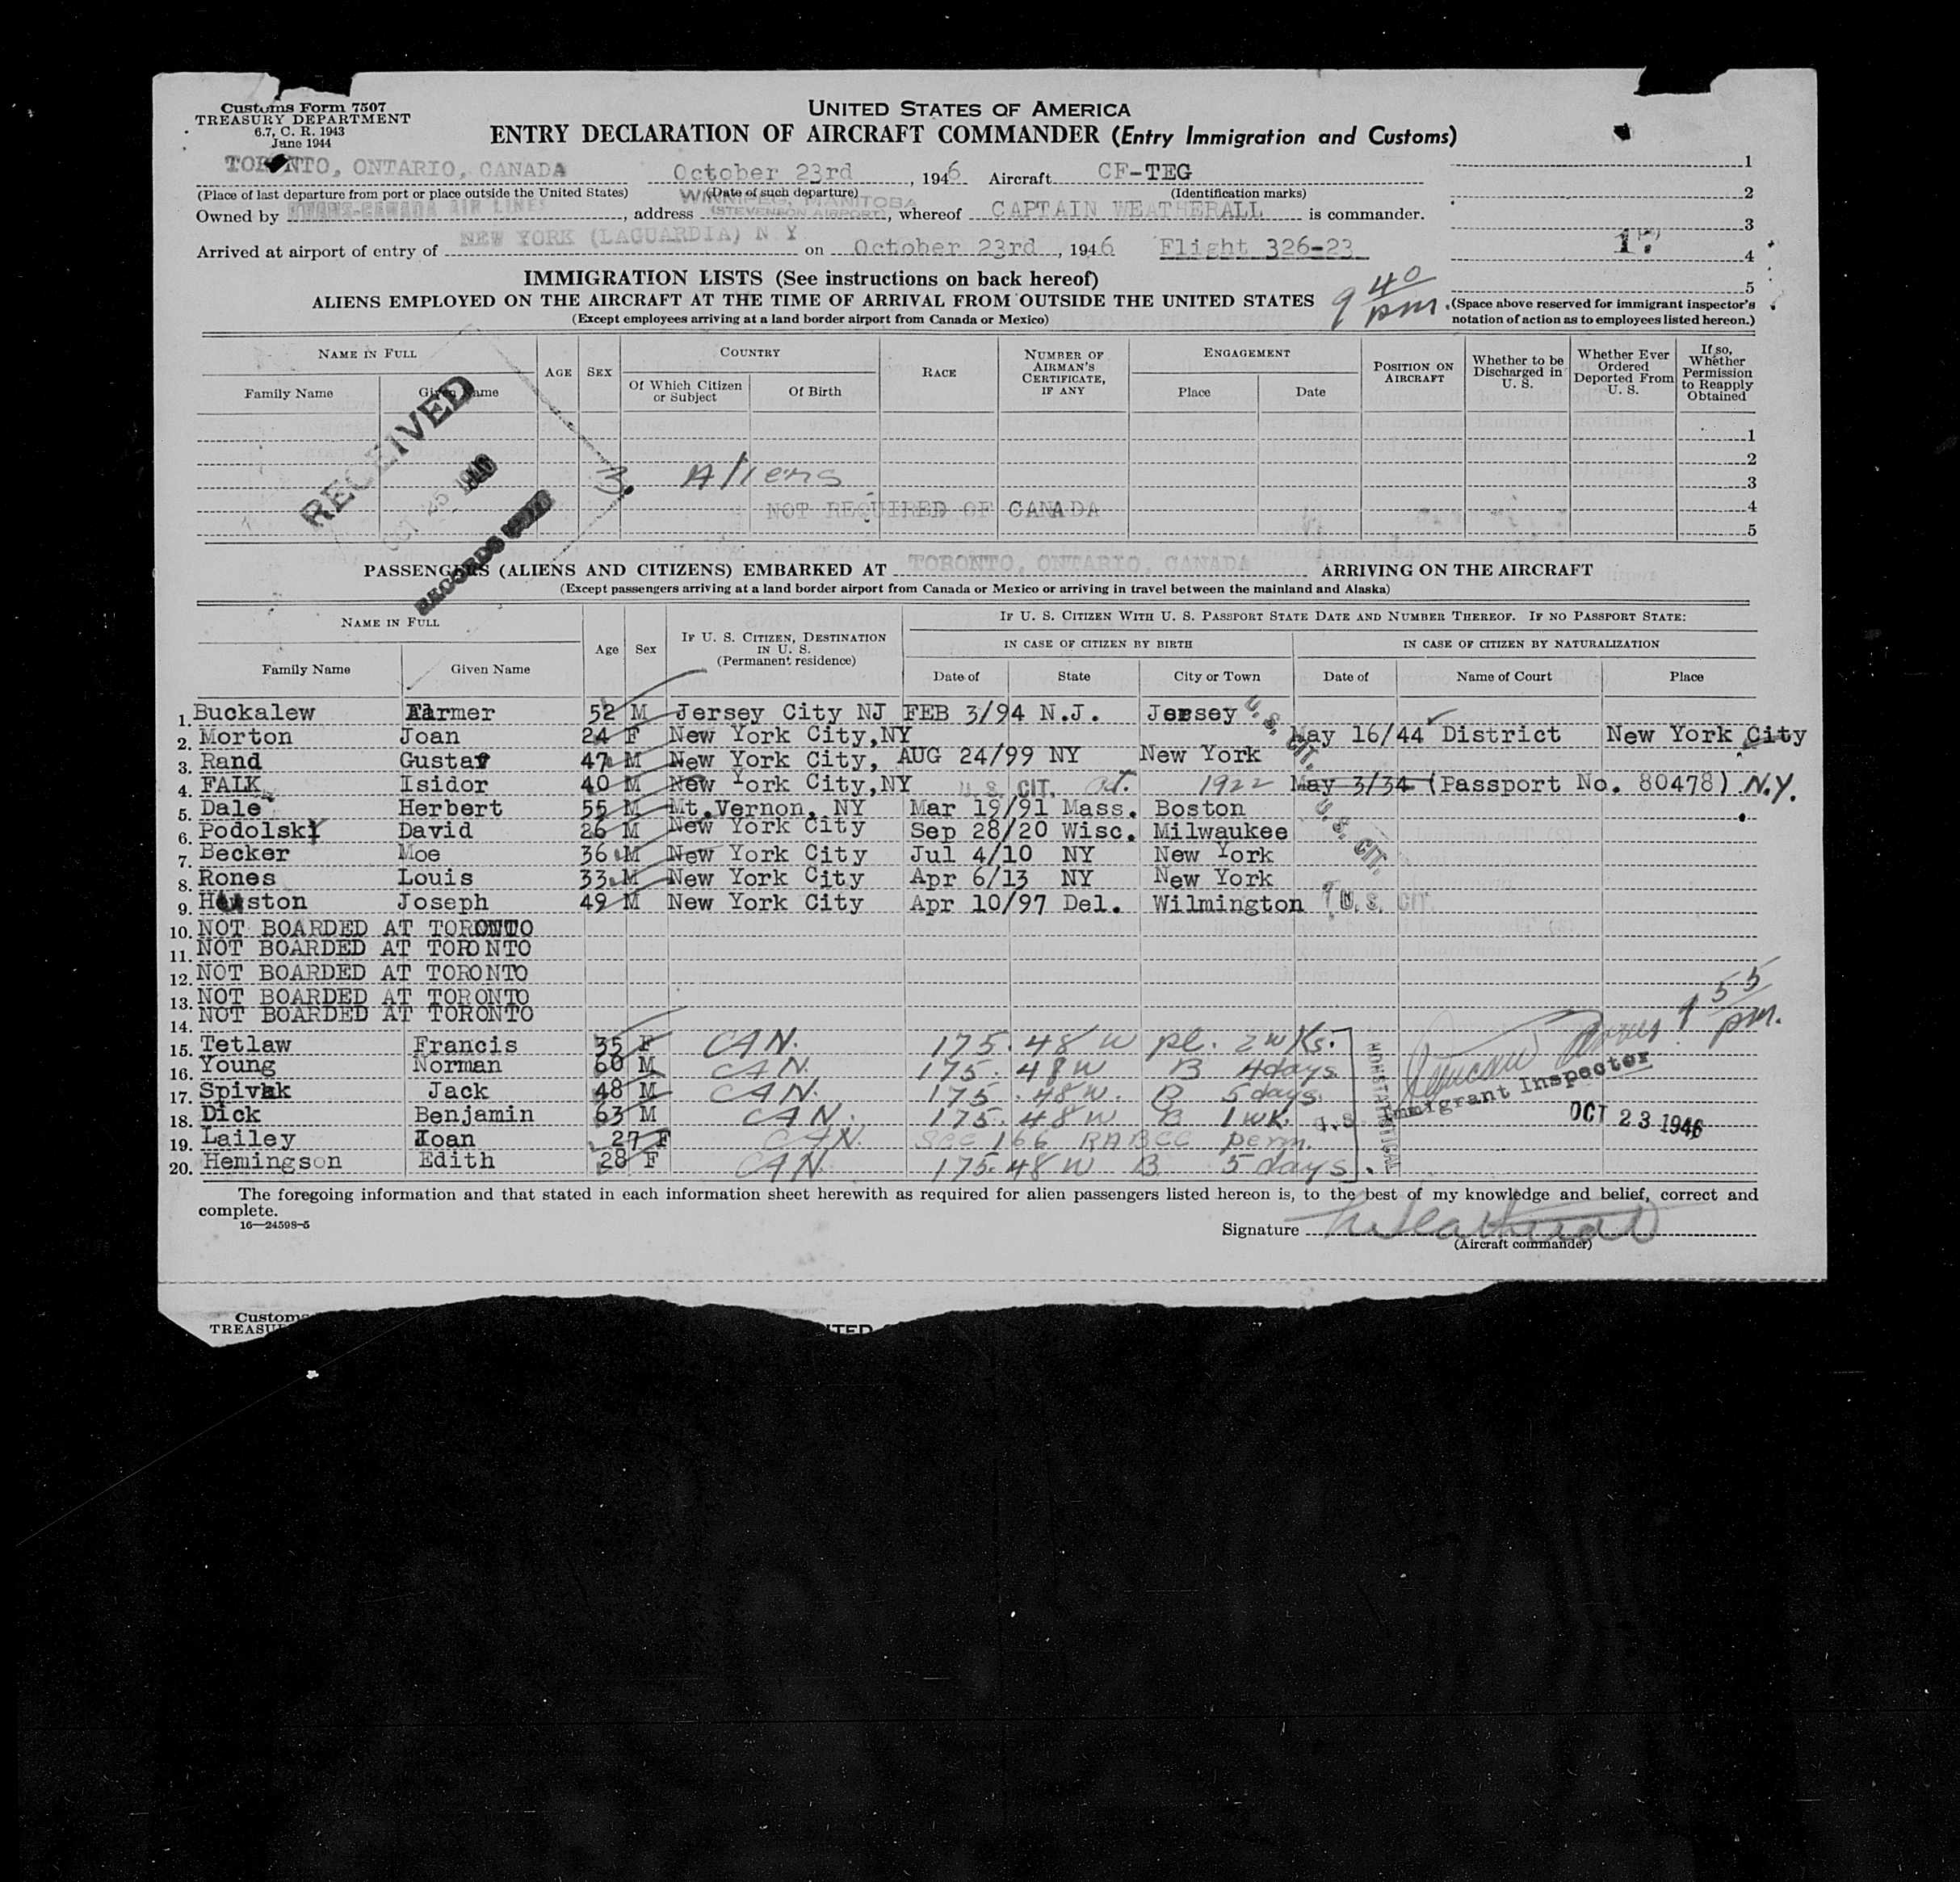 Customs Form 7507
TREASURY DEPARTMENT
6.7, C. R. 1943
June 1944
UNITED STATES OF AMERICA
ENTRY DECLARATION OF AIRCRAFT COMMANDER (Entry Immigration and Customs)
TORONTO, ONTARIO, CANADA October 23rd, 1946 Aircraft CF-TEG 1
(Place of last departure from port or place outside the United States) (Date of such departure) (Identification marks) 2
WINNIPEG, MANITOBA
Owned by TRANS-CANADA AIR LINES, address (STEVENSON AIRPORT), whereof CAPTAIN WEATHERALL is commander.
3
Arrived at airport of entry of NEW YORK (LAGUARDIA) N Y on October 23rd, 1946 Flight 326-23 4
IMMIGRATION LISTS (See instructions on back hereof)
5
ALIENS EMPLOYED ON THE AIRCRAFT AT THE TIME OF ARRIVAL FROM OUTSIDE THE UNITED STATES 9 40 pm.
(Space above reserved for immigrant inspector's notation of action as to employees listed hereon.)
(Except employees arriving at a land border airport from Canada or Mexico)
NAME IN FULL AGE SEX COUNTRY RACE NUMBER OF AIRMAN'S CERTIFICATE, IF ANY ENGAGEMENT POSITION ON AIRCRAFT Whether to be Discharged in U. S. Whether Ever Ordered Deported From U. S. If so, Whether Permission to Reapply Obtained
Family Name Given Name Of Which Citizen or Subject Of Birth Place Date
1
2
3. Aliens 3
NOT REQUIRED OF CANADA 4
5
RECEIVED
OCT 25 1946
RECORDS
PASSENGERS (ALIENS AND CITIZENS) EMBARKED AT TORONTO, ONTARIO, CANADA ARRIVING ON THE AIRCRAFT
(Except passengers arriving at a land border airport from Canada or Mexico or arriving in travel between the mainland and Alaska)
NAME IN FULL Age Sex IF U. S. CITIZEN, DESTINATION IN U. S. (Permanent residence) IF U. S. CITIZEN WITH U. S. PASSPORT STATE DATE AND NUMBER THEREOF. IF NO PASSPORT STATE:
IN CASE OF CITIZEN BY BIRTH IN CASE OF CITIZEN BY NATURALIZATION
Family Name Given Name Date of State City or Town Date of Name of Court Place
1. Buckalew Farmer 52 M Jersey City NJ FEB 3/94 N.J. Jersey U. S. CIT.
2. Morton Joan 24 F New York City,NY May 16/44 District New York City
3. Rand Gustaf 47 M New York City, AUG 24/99 NY New York
4. FALK Isidor 40 M New York City,NY U. S. CIT. 1922 May 3/34 (Passport No. 80478) N.Y.
5. Dale Herbert 55 M Mt.Vernon, NY Mar 19/91 Mass. Boston
6. Podolsky David 26 M New York City Sep 28/20 Wisc. Milwaukee U. S. CIT.
7. Becker Moe 36 M New York City Jul 4/10 NY New York
8. Rones Louis 33 M New York City Apr 6/13 NY New York
9. Houston Joseph 49 M New York City Apr 10/97 Del. Wilmington U. S. CIT.
10. NOT BOARDED AT TORONTO
11. NOT BOARDED AT TORONTO
12. NOT BOARDED AT TORONTO
13. NOT BOARDED AT TORONTO
14. NOT BOARDED AT TORONTO
15. Tetlaw Francis 35 F CAN. 175.48 W pl. 2 wks.
16. Young Norman 60 M CAN. 175. 48 W B 4 days
17. Spivak Jack 48 M CAN. 175. 48 W. B 5 days.
18. Dick Benjamin 63 M CAN. 175.48 W B 1 wk.
19. Lailey Joan 27 F CAN. Sec 166 RABCC perm.
20. Hemingson Edith 28 F CAN. 175.48 W B 5 days.
NONSTATISTICAL
9 55 pm.
U.S. Immigrant Inspector
OCT 23 1946
The foregoing information and that stated in each information sheet herewith as required for alien passengers listed hereon is, to the best of my knowledge and belief, correct and
complete.
16—24598-5
Signature Weatherall
(Aircraft commander)
Customs
TREASU